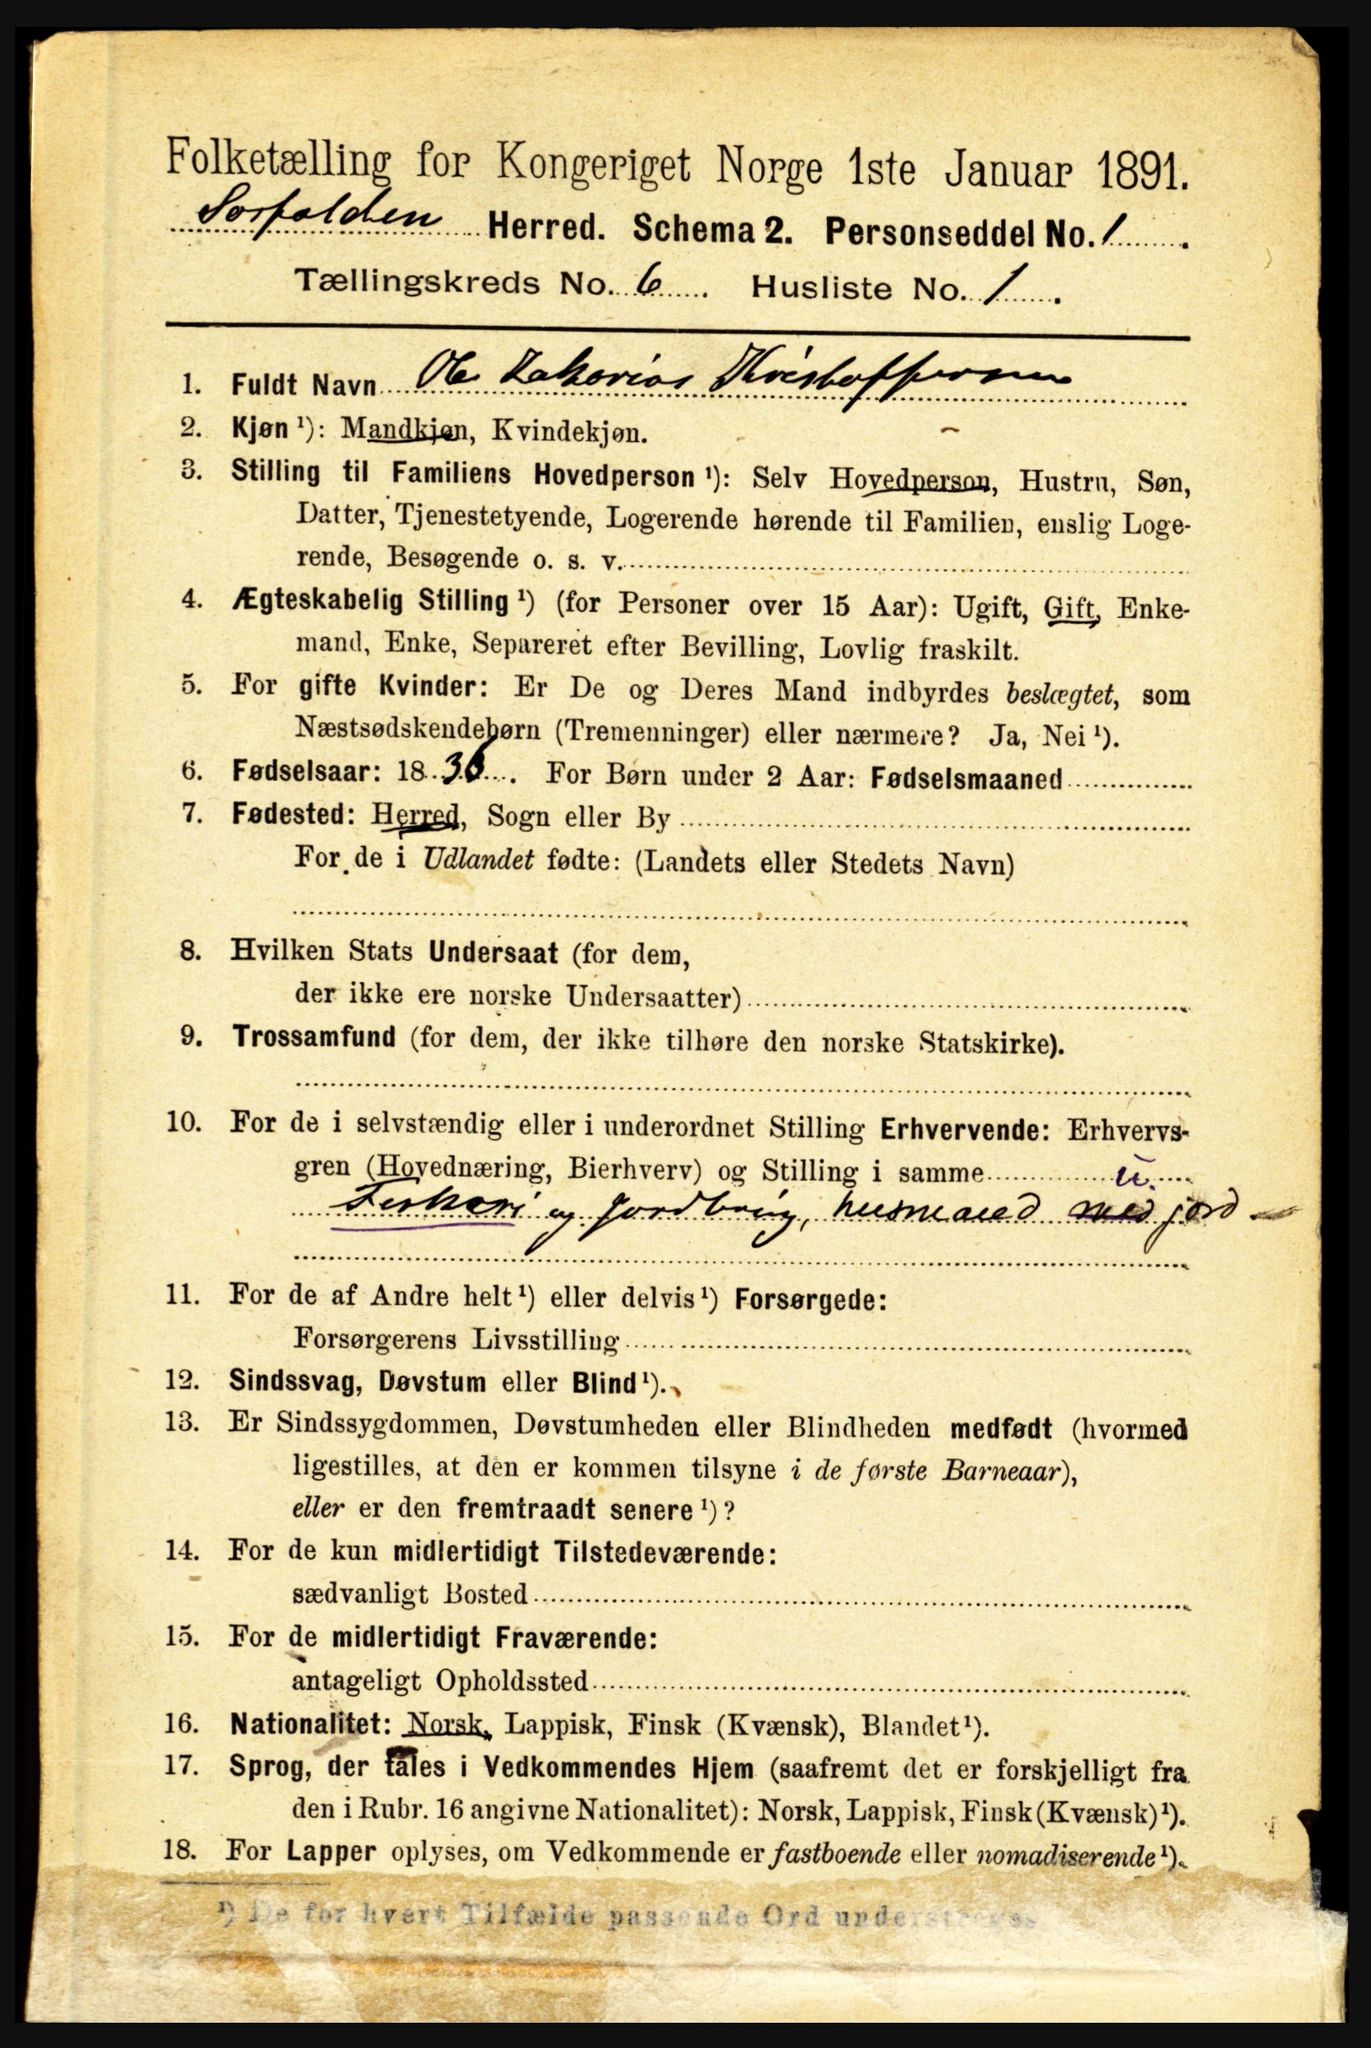 Folketælling for Kongeriget Norge 1ste Januar 1891.
Sørfolden Herred. Schema 2. Personseddel No. 1.
Tællingskreds No. 6. Husliste No. 1.
1. Fuldt Navn Ole Zakarias Kristoffersen
2. Kjøn ¹): Mandkjøn, Kvindekjøn.
3. Stilling til Familiens Hovedperson ¹): Selv Hovedperson, Hustru, Søn,
Datter, Tjenestetyende, Logerende hørende til Familien, enslig Loge-
rende, Besøgende o. s. v.
4. Ægteskabelig Stilling ¹) (for Personer over 15 Aar): Ugift, Gift, Enke-
mand, Enke, Separeret efter Bevilling, Lovlig fraskilt.
5. For gifte Kvinder: Er De og Deres Mand indbyrdes beslægtet, som
Næstsødskendebørn (Tremenninger) eller nærmere? Ja, Nei ¹).
6. Fødselsaar: 1836. For Børn under 2 Aar: Fødselsmaaned
7. Fødested: Herred, Sogn eller By
For de i Udlandet fødte: (Landets eller Stedets Navn)
8. Hvilken Stats Undersaat (for dem,
der ikke ere norske Undersaatter)
9. Trossamfund (for dem, der ikke tilhøre den norske Statskirke).
10. For de i selvstændig eller i underordnet Stilling Erhvervende: Erhvervs-
gren (Hovednæring, Bierhverv) og Stilling i samme u.
Fiskeri og jordbrug, husmand med jord
11. For de af Andre helt ¹) eller delvis ¹) Forsørgede:
Forsørgerens Livsstilling
12. Sindssvag, Døvstum eller Blind ¹).
13. Er Sindssygdommen, Døvstumheden eller Blindheden medfødt (hvormed
ligestilles, at den er kommen tilsyne i de første Barneaar),
eller er den fremtraadt senere ¹)?
14. For de kun midlertidigt Tilstedeværende:
sædvanligt Bosted
15. For de midlertidigt Fraværende:
antageligt Opholdssted
16. Nationalitet: Norsk, Lappisk, Finsk (Kvænsk), Blandet ¹).
17. Sprog, der tales i Vedkommendes Hjem (saafremt det er forskjelligt fra
den i Rubr. 16 angivne Nationalitet): Norsk, Lappisk, Finsk (Kvænsk) ¹).
18. For Lapper oplyses, om Vedkommende er fastboende eller nomadiserende ¹).
¹) De for hvert Tilfælde passende Ord understreges